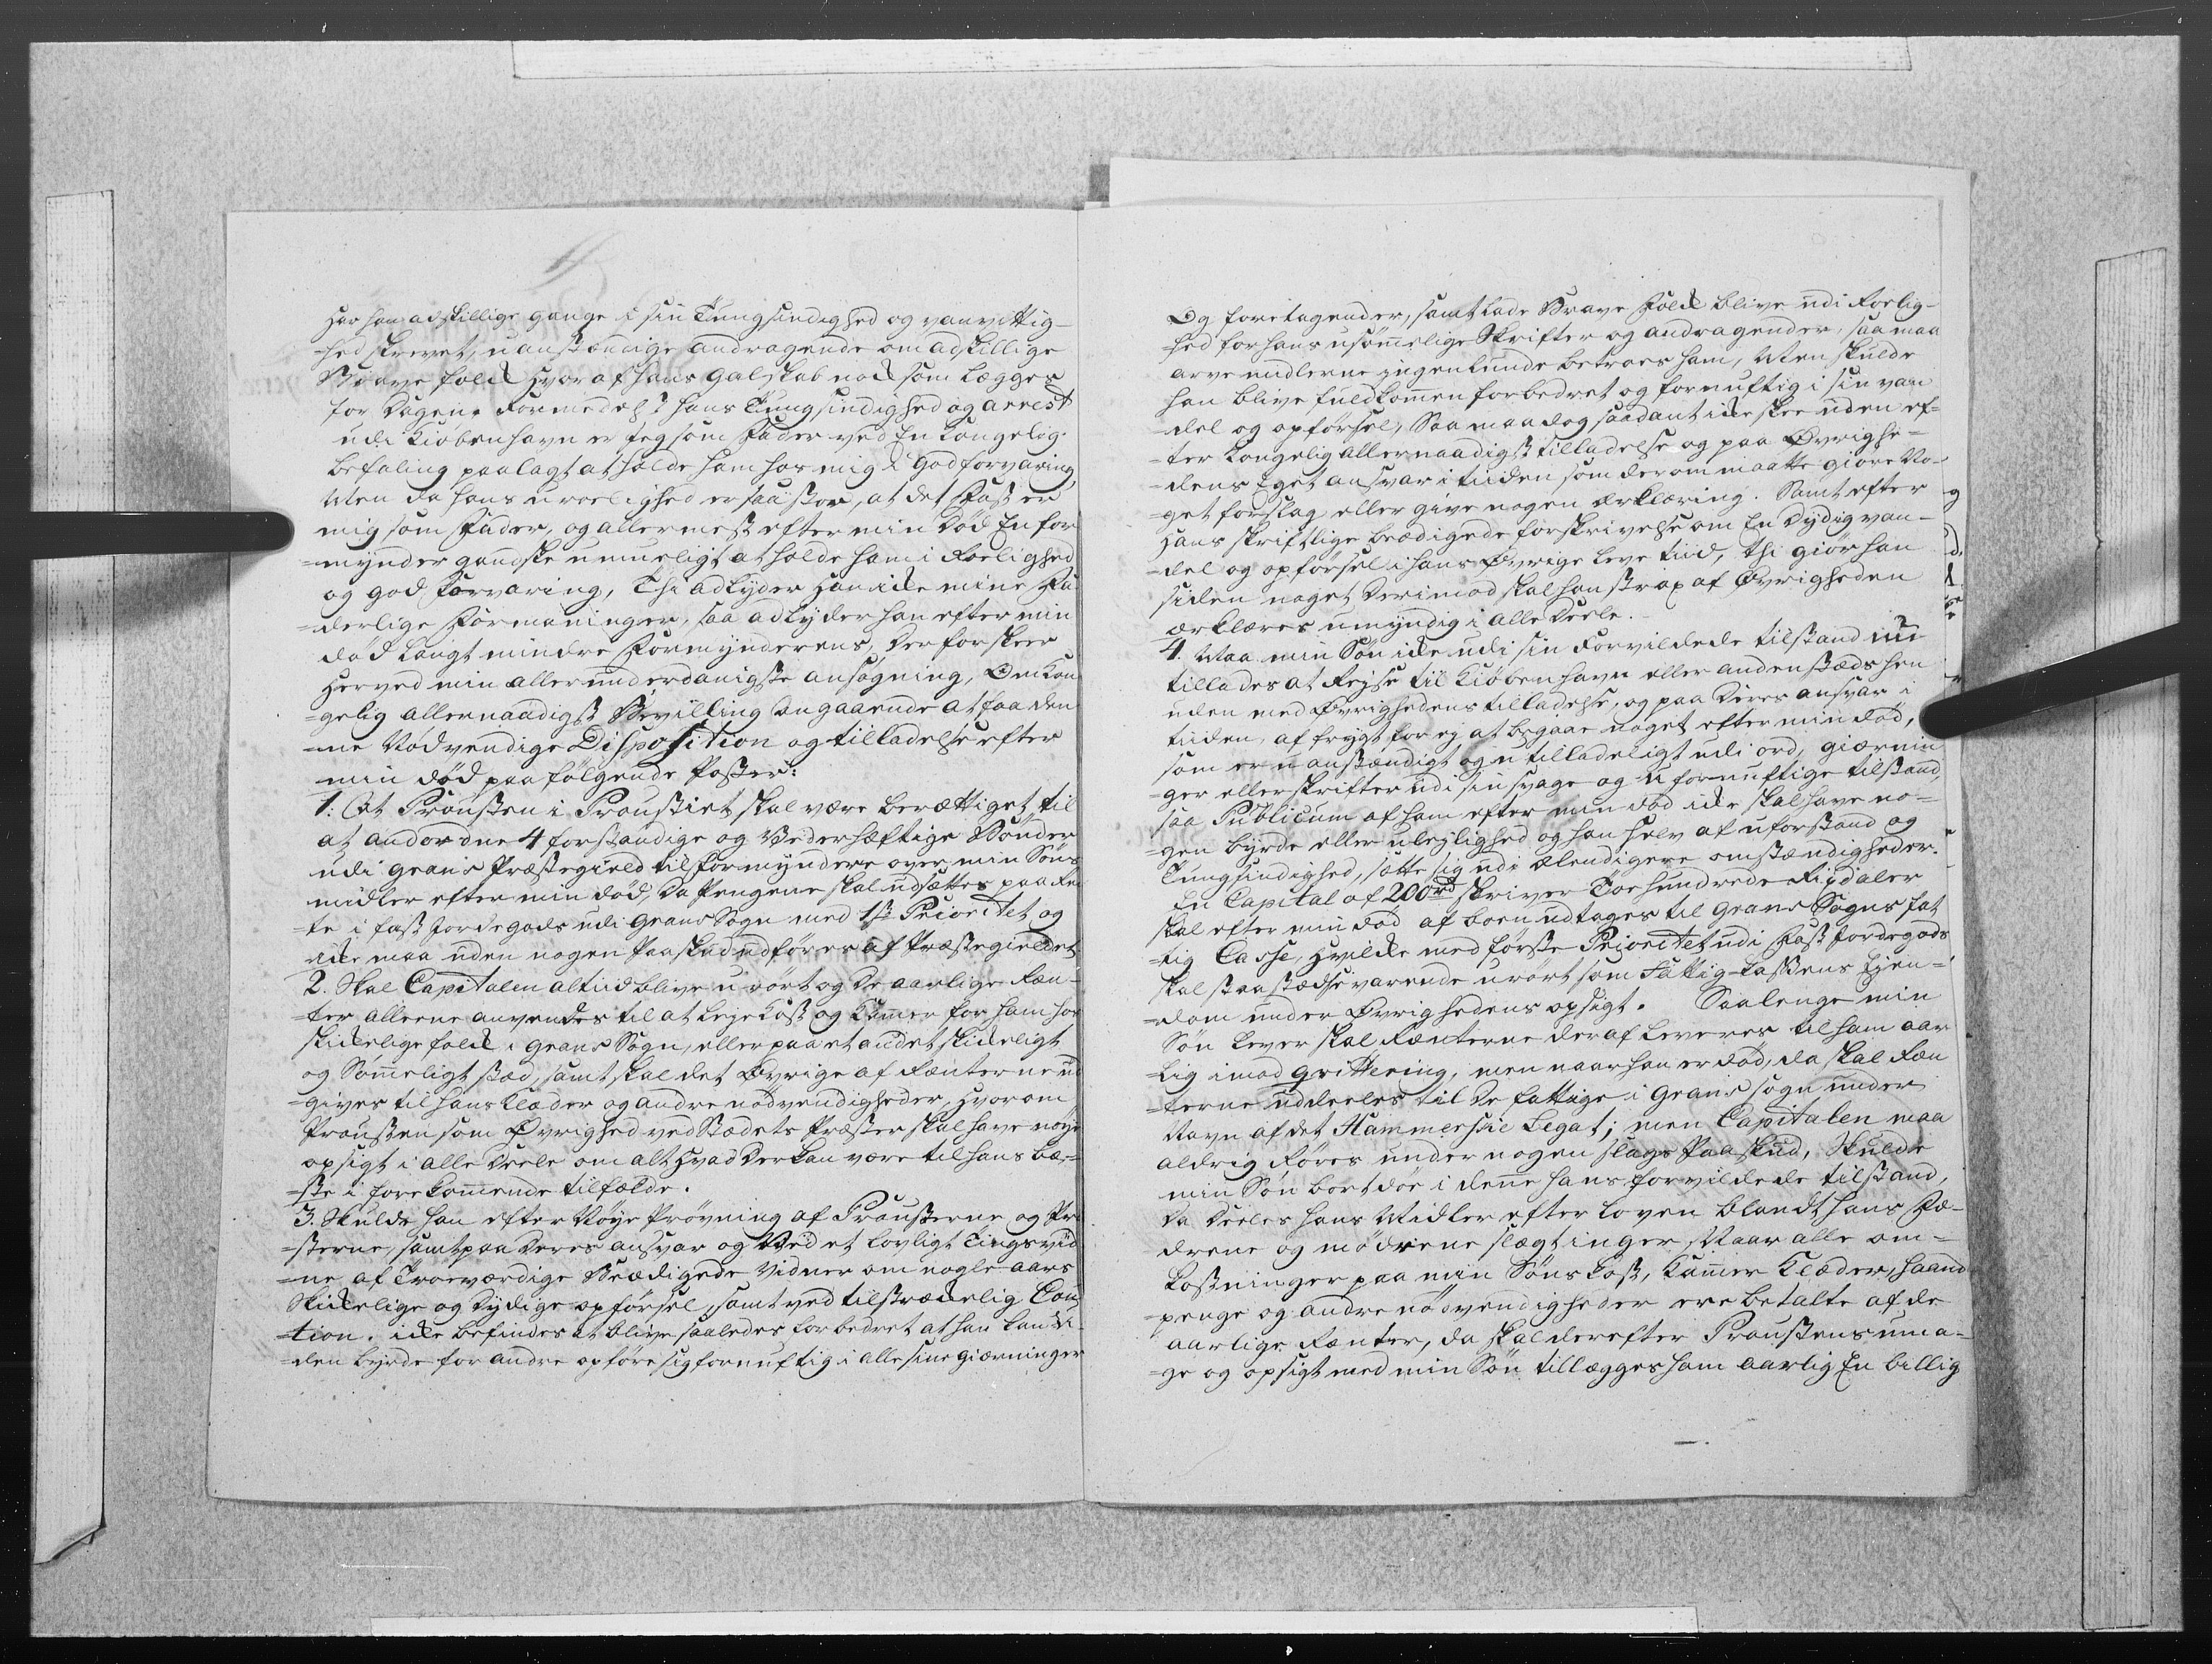 har han adskillige gange i sin Tungsindighed og vanvittig-
=hed skrevet, uanstændige andragende om adskillige
Brave folck hvoraf hans galskab nock som lægges
for Dagen. Formedelst hans Tungsindighed og arrest
udi Kiøbenhavn er jeg som Fader ved En Kongelig
befaling paalagt at holde ham hos mig i god forvaring,
Men da hans uroelighed er saa stor, at det Fast er
mig som Fader, og allermest efter min Død En for
=mynder gandske umueligt at holde ham i Roelighed
og god Forvaring, Thi adlyder han icke mine Fa
=derlige Formaninger, saa adlyder han efter min
død langt mindre Formynderens, Derfor skeer
herved min allerunderdanigste ansøgning, Om Kon
=gelig allernaadigst Bevilling angaaende at faa den
=ne Nødvendige Disposition og tilladelse efter
min død paa følgende Poster:
1: At Prousten i Proustiet skal være berættiget til
at andordne 4 forstandige og Vederhæftige Bønder
udi Grans Præstegield til formyndere over min Søns
midler efter min død, Da Pengene skal udsættes paa Ren
=te i fast Jordegods udi Grans Sogn med 1ste Prioritet og
icke maa uden nogen Paaskud udføres af Præstegieldet
2. Skal Capitalen altiid blive urørt og De aarlige Ræn-
=ter alleene anvendes til at leye Kost og Kamer for ham hos
skickelige folck i Grans Sogn, eller paa et andet skickeligt
og Sømeligt stæd, samt skal det Øvrige af Rænterne ud
=gives til hans Klæder og andre nødvendigheder, hvorom
Prousten som Øvrighed ved Stædets Præster skal have nøye
opsigt i alle Deele om alt hvad Der kan være til hans bæ-
=ste i forekomende tilfælde.
3. Skulde han efter Nøye Prøvning af Prousterne og Præ
=sterne, samt paa Deres ansvar og Ved et lovligt Tingsvid
=ne af Troeværdige Beædigede Vidner om nogle aars
Skickelige og Dydige opførsel, samt ved tilstræckelig Cau
=tion. icke befindes at blive saaledes forbedret at han kan u
=den byrde for andre opføre sig fornuftig i alle sine giærninger
Og foretagender, samt lade Brave Folck blive udi Roelig-
=hed for hans usømelige Skrifter og andragender, saa maa
arve midlerne ingenlunde betroes ham, Men skulde
han blive fuldkomen forbedret og fornuftig i sin van
del og opførsel, Saa maa dog saadant icke skee uden ef=
=ter Kongelig allernaadigst tilladelse og paa Øvrighe=
=dens Eget ansvar i tiiden som derom maatte giøre No-
=get forslag eller give nogen Ærklæring. Samt efter
hans skriftlige beædigede forskrivelse om En Dydig van-
=del og opførsel i hans Øvrige leve tiid, thi giør han
siden noget Derimod skal han strax af Øvrigheden
ærklæres umyndig i alle Deele.
4. Maa min Søn icke udi sin Forvildede tilstand
tillades at Rejse til Kiøbenhavn eller anden stæds hen
uden med Øvrighedens tilladelse, og paa Deres ansvar i
tiiden, af frygt for ej at begaae noget efter min død,
som er uanstændigt og utilladeligt udi ord, giærnin
=ger eller skrifter udi sin svage og ufornuftige tilstand,
saa Publicum af ham efter min død icke skal have no=
=gen byrde eller ulejlighed og han selv af uforstand og
Tungsindighed, sætte sig udi Ælendigere omstændigheder.
En Capital af 200rd skriver Toehundrede Rigdaler
skal efter min død af boen udtages til Grans Sogns fat
=tig Casse, hvilcke med første Prioritet udi Fast Jordegods
skal staa stædsevarende urørt som Fattig-Cassens Ejen-
=dom under Øvrighedens opsigt. Saalenge min
Søn lever skal Rænterne deraf leveres til ham aar
lig imod qvittering, men naar han er død, da skal Ræn
=terne uddeeles til De fattige i Grans sogn under
Navn af det Hammerske Legat; men Capitalen maa
aldrig Røres under nogen slags Paaskud, Skulde
min Søn bortdøe i dene hans forvildede tilstand,
Da Deeles hans Midler efter loven blandt hans Fæ-
drene og mødrene slægtinger Naar alle om=
kostninger paa min Søns Kost, Kamer Klæder, haand
=penge og andre nødvendigheder ere betalte af de
aarlige Rænter, da skal derefter Proustens uma-
=ge og opsigt med min Søn tillægges ham aarlig En billig